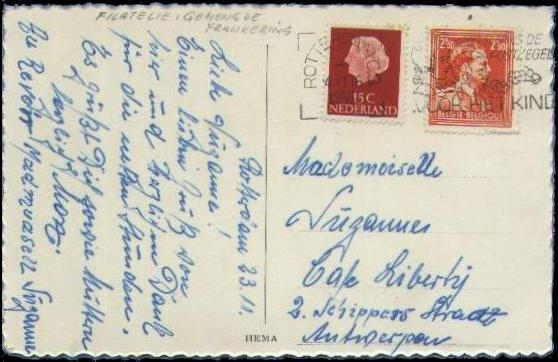 FILATELIE: GEMENGDE
FRANKERING
Rotterdam 23.11.
Liebe Suzanne!
Einen lieben Gruß von
hier und herzlichen Dank
für die netten Stunden.
Es grüßt Dich sowie Mutter
herzlichst
Au Revoir Mademoisell Suzanne
ROTTERDAM
15C
NEDERLAND
2F50
2F50
BELGIE-BELGIQUE
IS DE
POSTZEGEL
VOOR HET KIND
Mademoiselle
Suzanne
Cafe Liberty
2. Schippers Straat
Antwerpen
HEMA